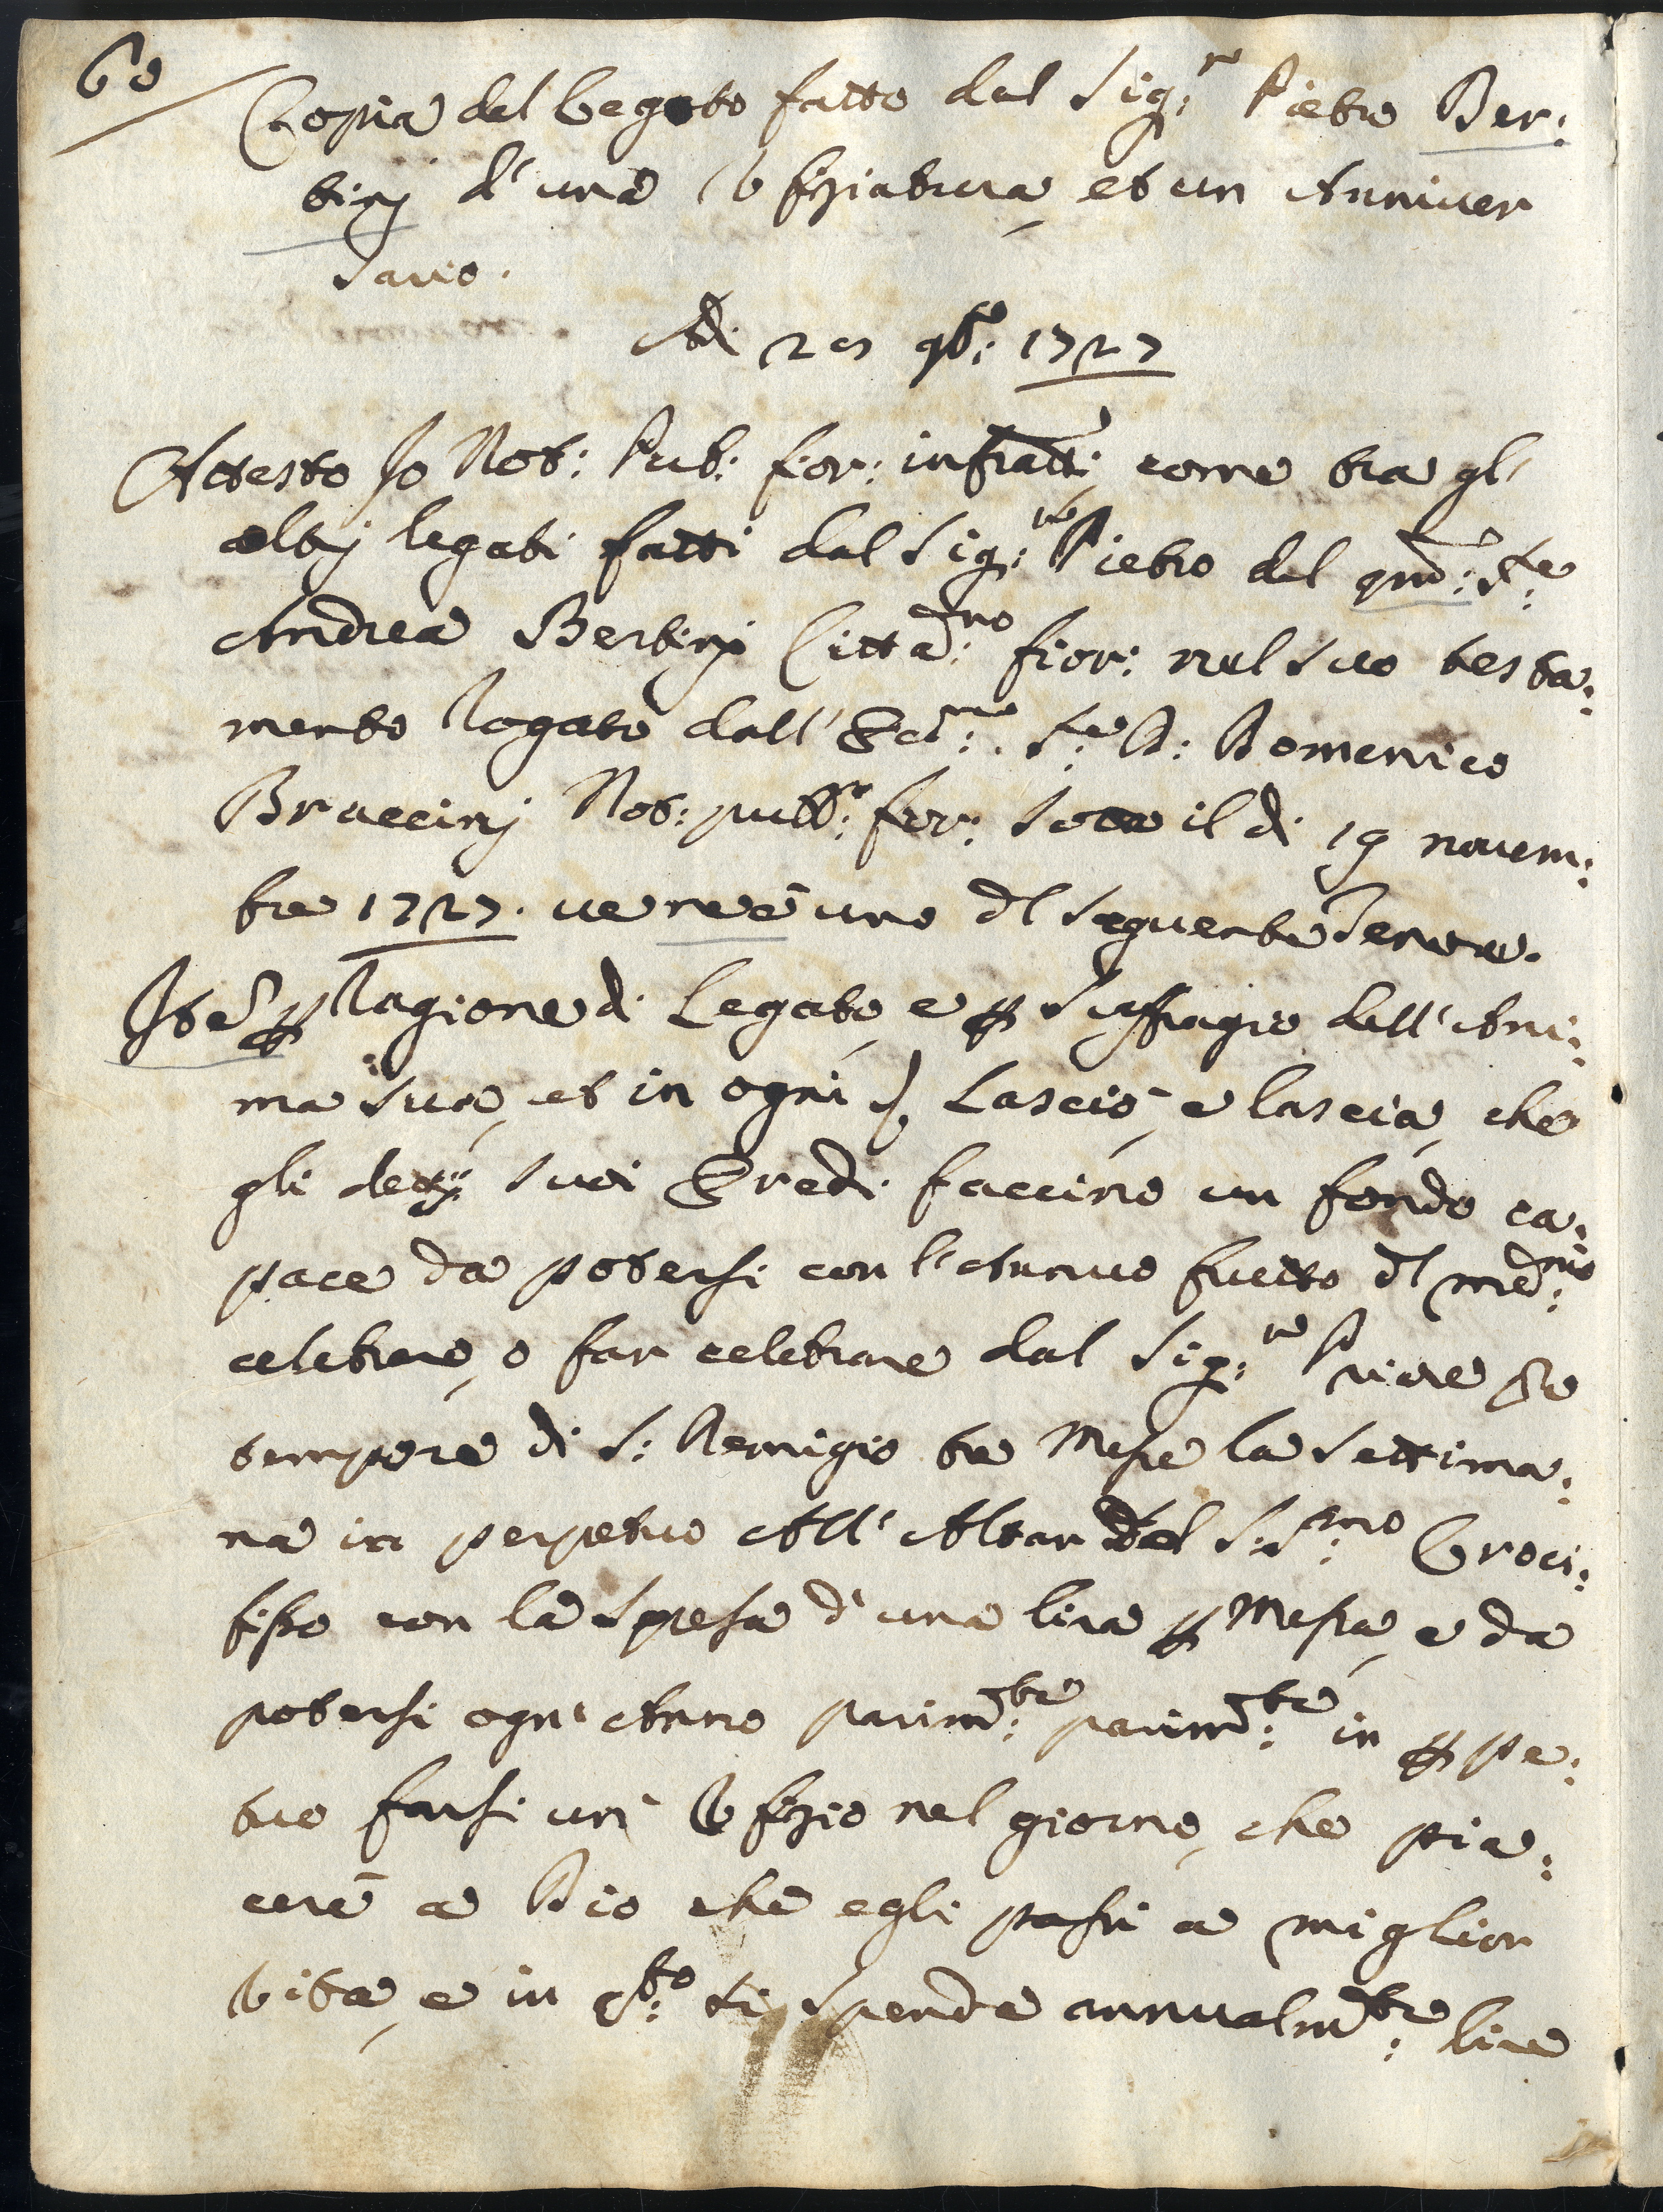 60
Copia del Legato fatto dal Sig:re Pietro Ber:
tinj d'una Ufiziatura, et un Anniver
sario.
Adi 20 9bre: 1727
Attesto Io Not: Pub: fior: infratto, come tra gl'
altrj legati fatti dal Sig:re Pietro del qm: Sre:
Andrea Bertinj Cittadno: fior: nel suo testa:
mento Rogato dall' Ecmo: Sre: D: Domenico
Braccinj Not: pubbo: fior: sotto il di 19 novem:
bre 1727. ve ne è uno dl seguente Tenore.
Ite per Ragione di Legato, e per Suffragio dell' Ani:
ma sua, et in ogni Lasciò, e lascia, che
gli dettj suoi Eredi faccino un fondo ca:
pace da potersi con l'Annuo frutto dl medmo:
celebrare, o far celebrare dal Sig:re Priore pro
tempore di S: Remigio tre Messe la Settima:
na in perpetuo All' Altar del S:Smo: Croci:
fisso con la Spesa d'una lira per Messa, e da
potersi ogn' Anno parimte: parimte: in perpe:
tuo farsi un' Ufizio nel giorno, che pia:
cerè a Dio che egli passi a miglior
Vita, e in qto: si spenda annualmte: lire